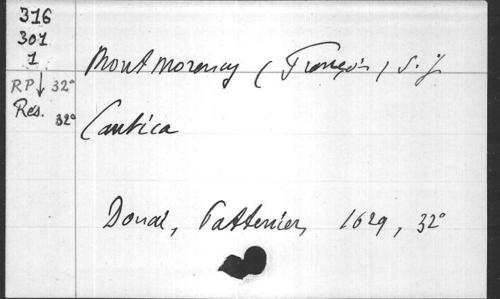 316
301
1
RP ↓ 32°
Res. 32°
Montmorency (François) S.J.
Cantica
Douai, Pattenier, 1629, 32°